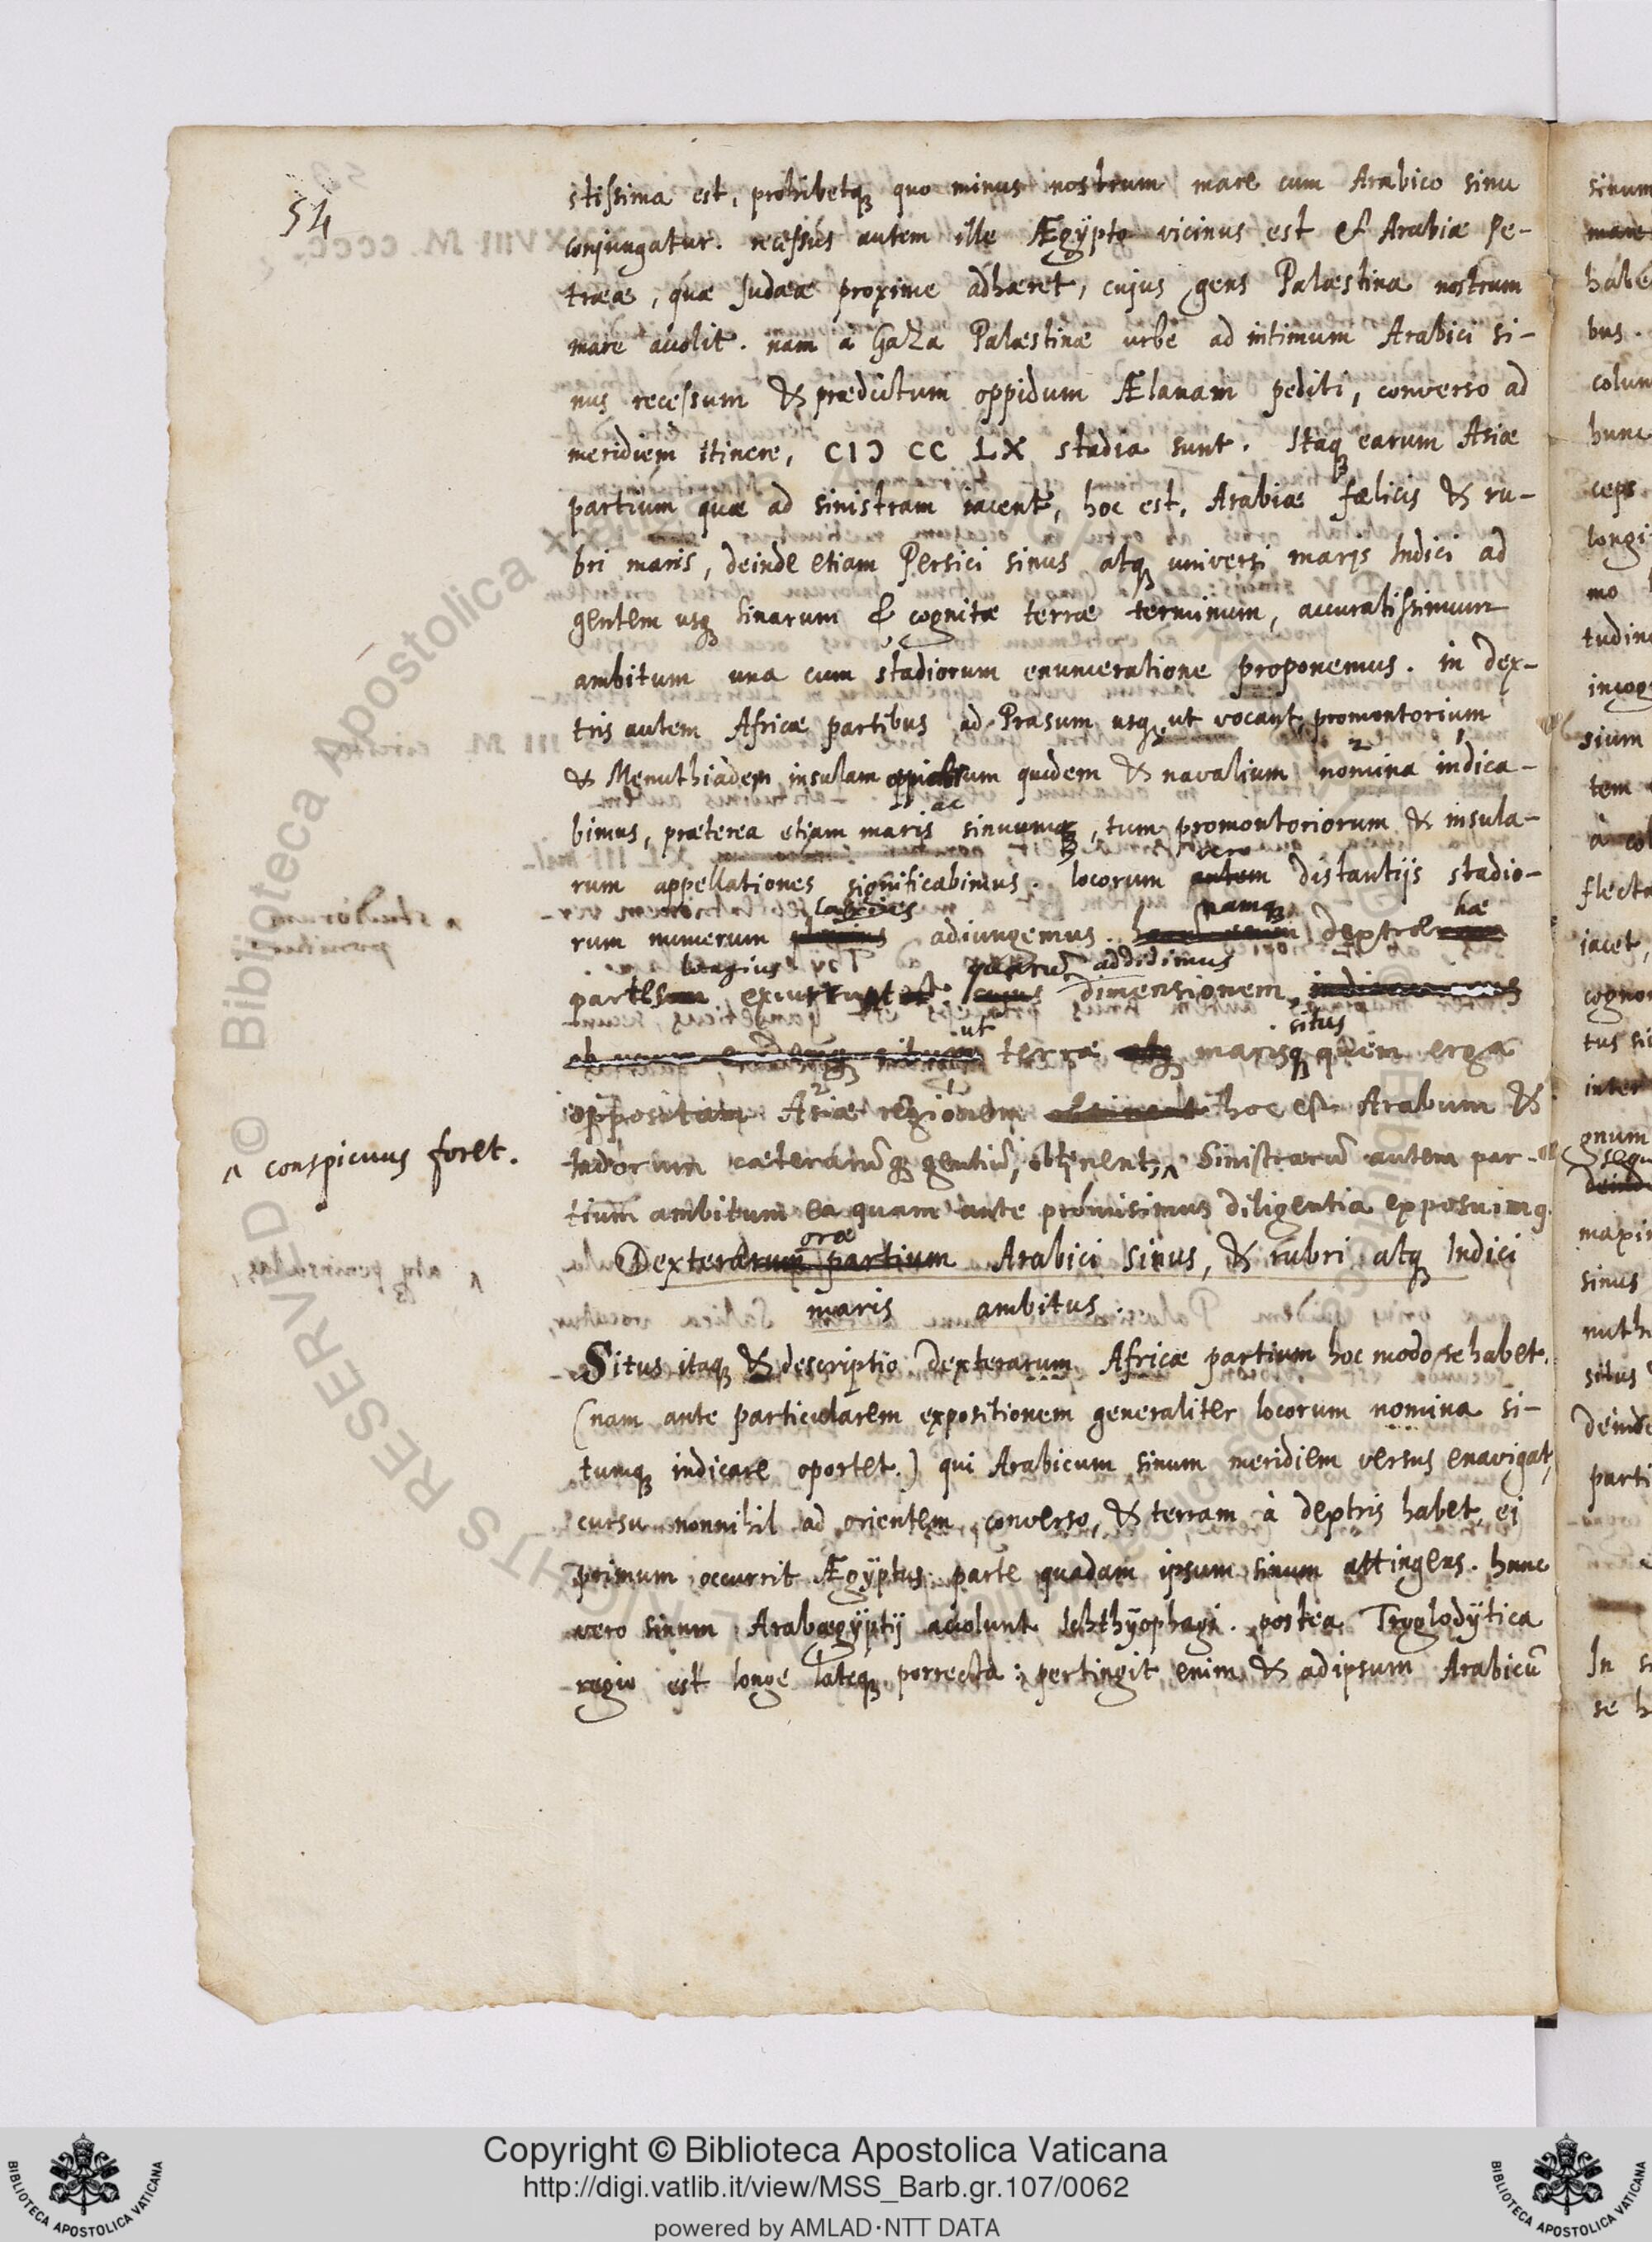 54
stissima est, prohibetq; quo minus nostrum mare cum Arabico sinu
conjungatur. recessus autem ille Ægÿpto vicinus est & Arabiæ Pe-
træa, quæ Judææ proxime adhæret, cujus gens Palæstina nostrum
mare acolit. nam à Gaza Palæstinæ urbe ad intimum Arabici si-
nus recessum & prædictum oppidum Ælanam pediti, converso ad
meridiem itinere, CIƆ CC LX stadia sunt. Itaq; earum Asiæ
partium quæ ad sinistram iacent, hoc est, Arabiæ fœlicis & ru-
bri maris, deinde etiam Persici sinus atq; universi maris Indici ad
gentem usq; Sinarum & cognitæ terræ terminum, accuratissimum
ambitum una cum stadiorum enumeratione proponemus. in dex-
tris autem Africæ partibus ad Prasum usq; ut vocant, promontorium
& Menuthiadem insulam oppidorum quidem & navalium nomina indica-
bimus, præterea etiam maris ac sinuumq;, tum promontoriorum & insula-
rum appellationes significabimus. locorum autem vero distantijs stadio-
rum numerum adiungemus. namq; dextræ hæ
partes longius excurrunt quarū dimensionem addidimus
ut terræ marisq; situs quem erga
oppositam Asiæ regionem hoc est Arabum &
Indorum cæterarūq; gentiū, obtinent, ^ Sinistrarū autem par-
^ conspicuus foret.
tium ambitum ea quam ante promisimus diligentia exposuimq.
Dexterarum partium oræ Arabici sinus, & rubri atq; Indici
maris ambitus.
Situs itaq; & descriptio dexterarum Africæ partium hoc modo se habet.
(nam ante particularem expositionem generaliter locorum nomina si-
tumq; indicare oportet.) qui Arabicum sinum meridiem versus enavigat,
cursu nonnihil ad orientem converso, & terram à dextris habet, ei
primum occurrit Ægÿptus parte quadam ipsum sinum attingens. hunc
vero sinum Arabægÿptij acolunt Ichthÿophagi. postea Troglodÿtica
regio est longe lateq; porrecta: pertingit enim & ad ipsum Arabicū
Copyright © Biblioteca Apostolica Vaticana
http://digi.vatlib.it/view/MSS_Barb.gr.107/0062
powered by AMLAD·NTT DATA